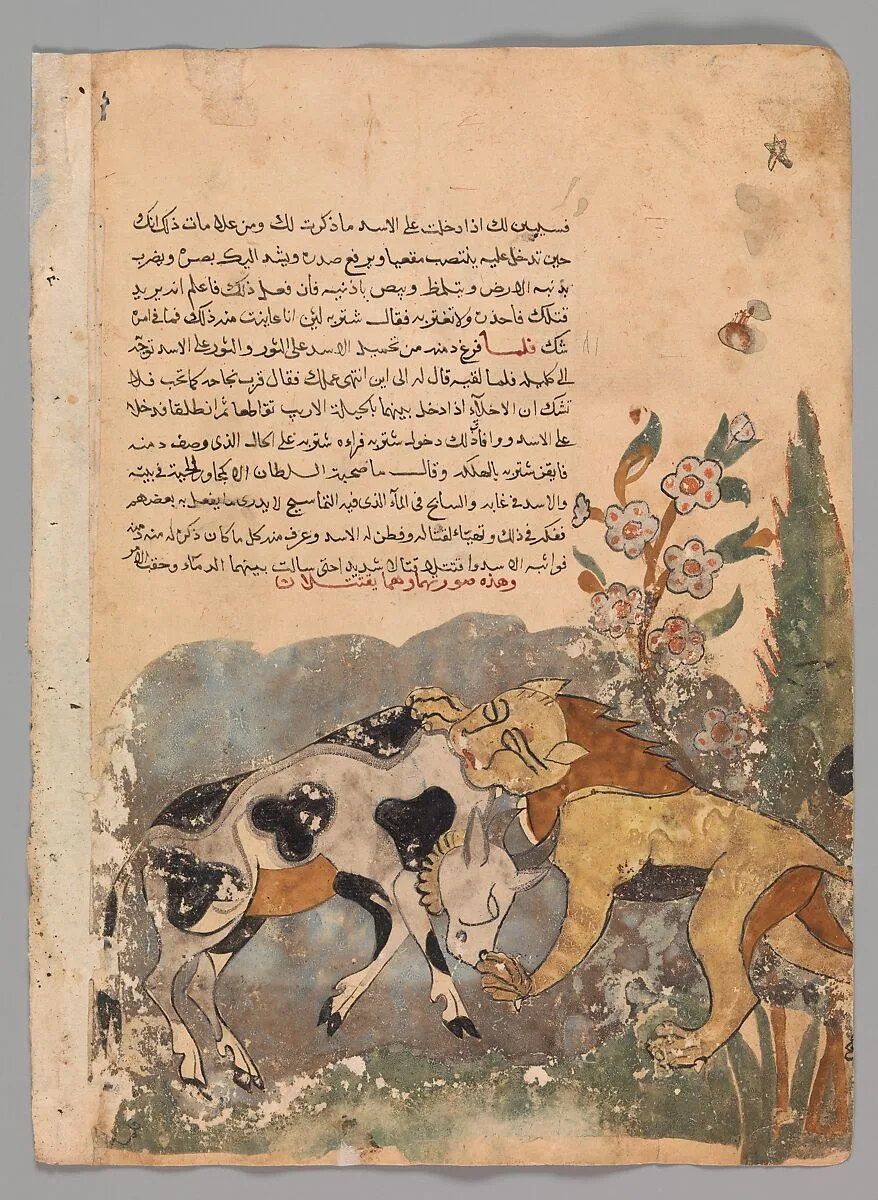 فسيبين لك اذا دخلت على الاسد ما ذكرت لك ومن علامات ذلك انك
حين تدخل عليه ينتصب مقعيا ويرفع صدره ويشد اليك بصره ويضرب
بذنبه الارض ويتلمظ وبيص باذنيه فان فعل ذلك فاعلم انه يريد
قتلك فاحذره ولا تغتر به فقال شتربه لين انا عاينت منه ذلك فما في امره
شك فلما فرغ دمنه من تحميل الاسد على الثور والثور على الاسد توجه
الى كليله فلما لقيه قال له الى اين انتهى عملك فقال قرب نجاحه كما تحب فلا
تشك ان الاخلاء اذا دخل بينهما باحيلة الاريب تقاطعا ثم انطلقا فدخلا
على الاسد ووافا ذلك دخول شتربه فراءه شتربه على الحال الذى وصف دمنه
فايقن شتربه بالهلكه وقال ما صحبة السلطان الا كمجاور الحية في بيته
والاسد في غابه والسابح في الماء الذى فيه التماسيح لا يدرى ما يفعل به بعضهم
ففكر في ذلك وتهياء لقتاله وفطن له الاسد وعرف منه كل ما كان ذكره له دمنه
فواثبه الاسد واقتتلا قتالا شديدا حتى سالت بينهما الدماء وحقب الامر
وهذه صورتهما وهما يقتتلان